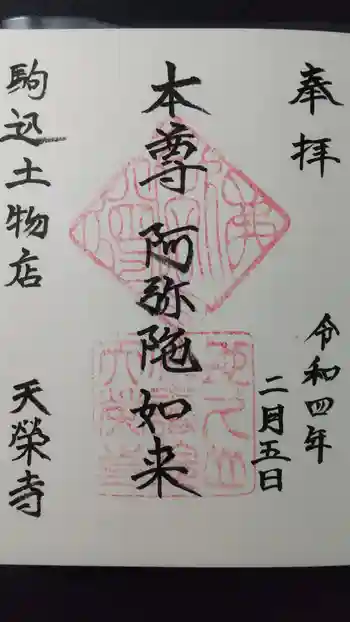 奉拝
令和四年
二月五日
本尊 阿弥陀如来
駒込土物店
天榮寺